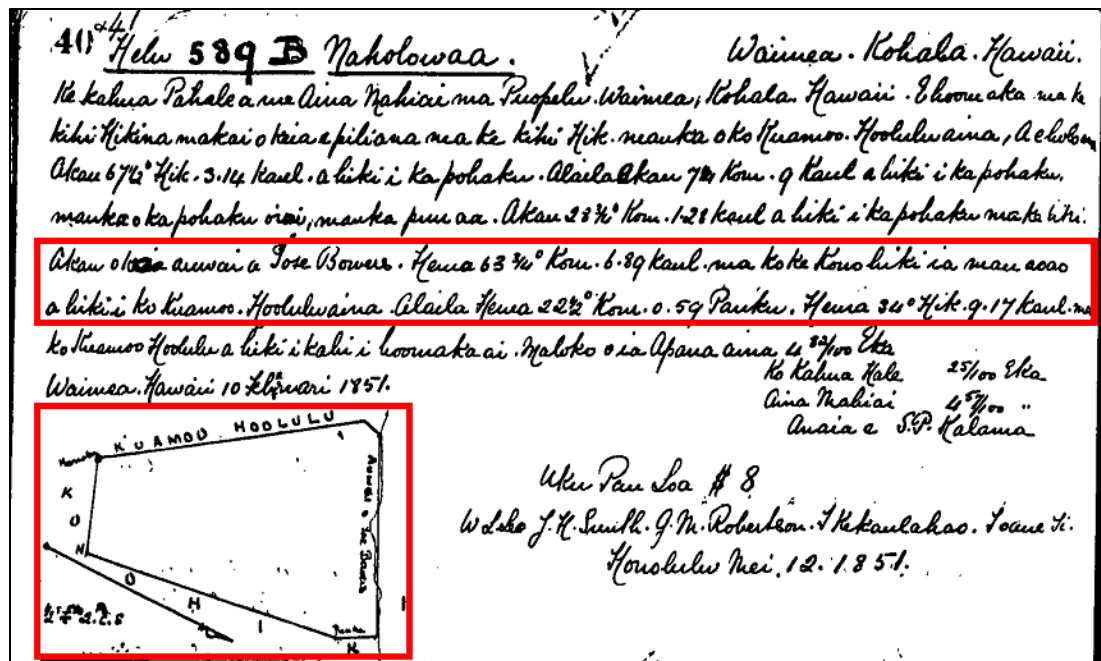 40 & 41
Helu 589 B Naholowaa. Waimea. Kohala. Hawaii.
Ke kahua Pahale a me Aina Mahiai ma Puopelu. Waimea, Kohala. Hawaii. E hoomaka ma ke
kihi Hikina makai o keia e piliana me ke kihi Hik. mauka o ko Kuamoo. Hoolulu aina, A e holo ma
Akau 67½° Hik. 3.14 Kaul. a hiki i ka pohaku. Alaila Akau Kom. 9 Kaul a hiki i ka pohaku.
mauka o ka pohaku mauka puu aa. Akau 28¾° Kom. 1.28 kaul a hiki i ka pohaku ma ke kihi.
Akau o auwai a Jose Bowers. Hema 63¾° Kom. 6.89 kaul. ma ko ke Konohiki ia mau
a hiki i ko Kuamoo. Hooluluaina. Alaila Hema 22½° Kom. 0.59 Paniku. Hema 34° Hik. 9.17 kaul. ma
ko Kuamoo Hoolulu a hiki i kahi i hoomaka ai. Maloko o ia Apana aina 4 82/100 Eka
Ko Kahua Hale 25/100 Eka
Waimea. Hawaii 10 Feberuari 1851.
Aina Mahiai 4 57/100 "
Anaia e S.P. Kalama
KUAMOO HOOLULU
KONOHIKI
Auwai o Jose Bowers
Uku Pau Loa $ 8
W L Lee J. H. Smith. G. M. Robertson. J Kekaulahao. Ioane Ii.
Honolulu Mei. 12. 1851.